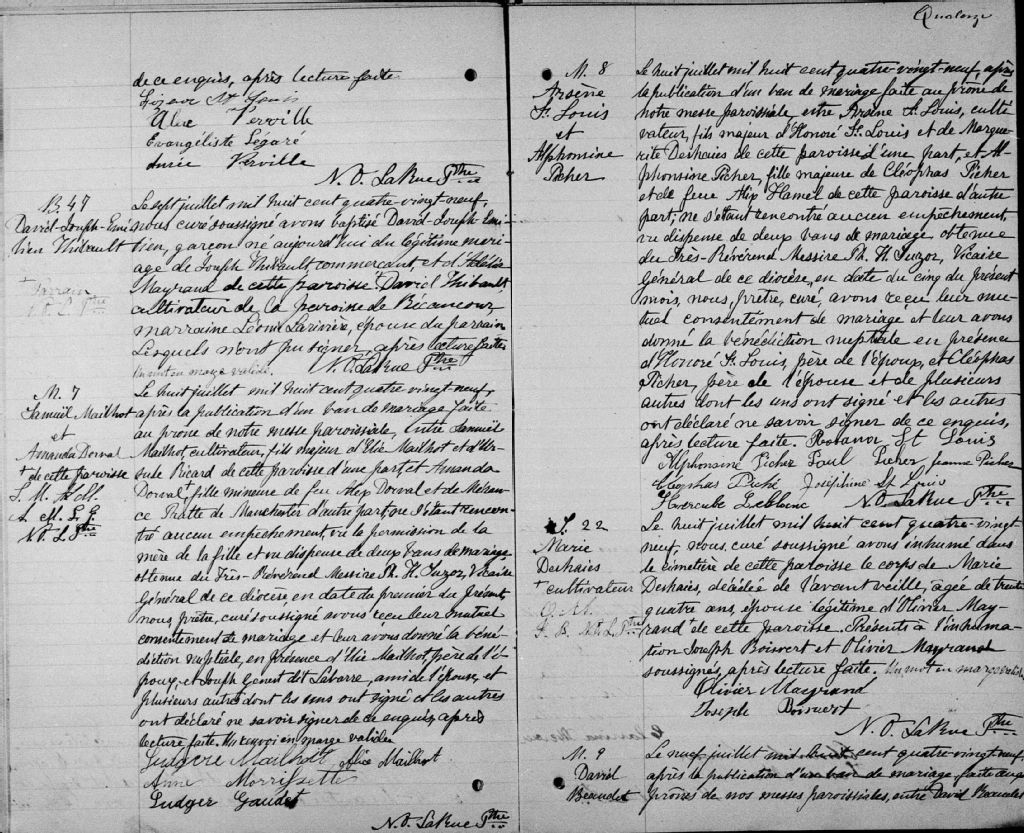 de ce enquis, après lecture faite.
St Louis
Verville
Evangéliste Légaré
Verville
N. O. LaRue Ptre
B. 47
David-Joseph-Emi-
lien Thibault
+ Parrain
Le sept juillet mil huit cent quatre-vingt-neuf,
nous curé soussigné avons baptisé David-Joseph-Emi-
lien, garçon né aujourd'hui du légitime mari-
age de Joseph Thibault, commerçant, et d'
Mayrand de cette paroisse. David Thibault
cultivateur de la paroisse de Bécancour,
marraine Léonie Larivière, épouse du parrain
Lesquels n'ont pu signer, après lecture faite.
Un mot en marge valide. N. O. LaRue Ptre
M. 7
Samuel Mailhot
et
Amanda Dorval
+ de cette paroisse
N. O. L. Ptre
Le huit juillet mil huit cent quatre vingt neuf,
après la publication d'un ban de mariage faite
au prone de notre messe paroissiale, entre Samuel
Mailhot, cultivateur, fils majeur d'Elie Mailhot et d'Ur-
sule Ricard de cette paroisse d'une part, et Amanda
Dorval+, fille mineure de feu Alex Dorval et de
ce Pratte de Manchester d'autre part, ne s'étant rencon-
tré aucun empêchement, vu la permission de la
mère de la fille et vu dispense de deux bans de mariage
obtenue du Très-Révérend Messire Ph. H. Suzor, Vicaire
Général de ce diocèse en date du premier du présent,
nous prêtre, curé soussigné avons reçu leur mutuel
consentement de mariage et leur avons donné la béné-
diction nuptiale, en présence d'Elie Mailhot, père de l'é-
poux, et Joseph Genest dit Labarre, ami de l'épouse, et
plusieurs autres dont les uns ont signé et les autres
ont déclaré ne savoir signer de ce enquis, après
lecture faite. Un renvoi en marge valide.
Mailhot Alice Mailhot
Anna Morrissette
Ludger Gaudet
N. O. LaRue Ptre
Quatorze
M. 8
Arsène
St. Louis
et
Alphonsine
Picher
Le huit juillet mil huit cent quatre-vingt-neuf, après
la publication d'un ban de mariage faite au prône de
notre messe paroissiale, entre Arsène St. Louis, culti-
vateur, fils majeur d'Honoré St. Louis et de Margue-
rite Deshaies de cette paroisse d'une part, et Al-
phonsine Picher, fille majeure de Cléophas Picher
et de feue Alix Hamel de cette paroisse d'autre
part; ne s'étant rencontré aucun empêchement,
vu dispense de deux bans de mariage obtenue
du Très-Révérend Messire Ph. H. Suzor, Vicaire
Général de ce diocèse, en date du cinq du présent
mois, nous, prêtre, curé, avons reçu leur mu-
tuel consentement de mariage et leur avons
donné la bénédiction nuptiale en présence
d'Honoré St. Louis, père de l'époux, et Cléophas
Picher, père de l'épouse et de plusieurs
autres dont les uns ont signé et les autres
ont déclaré ne savoir signer de ce enquis,
après lecture faite. St Louis
Alphonsine Picher Paul Picher Jeanne Picher
Cleophas Piché Joséphine St Louis
Hercule Leblanc N. O. LaRue Ptre
S. 22
Marie
Deshaies
+ cultivateur
O. M.
J. B. N. O. L. Ptre
Le huit juillet mil huit cent quatre-vingt
neuf, nous curé soussigné avons inhumé dans
le cimetière de cette paroisse le corps de Marie
Deshaies, décédée de l'avant veille, agée de trente
quatre ans, épouse légitime d'Olivier May-
rand+ de cette paroisse. Présents à l'inhuma-
tion Joseph Boisvert et Olivier Mayrand
soussignés, après lecture faite. Un mot en marge valide.
Olivier Mayrand
Joseph Boisvert
N. O. LaRue Ptre
M. 9
David
Beaudet
Le neuf juillet mil huit cent quatre-vingt-neuf,
après la publication d'un ban de mariage faite aux
prônes de nos messes paroissiales, entre David Beaudet